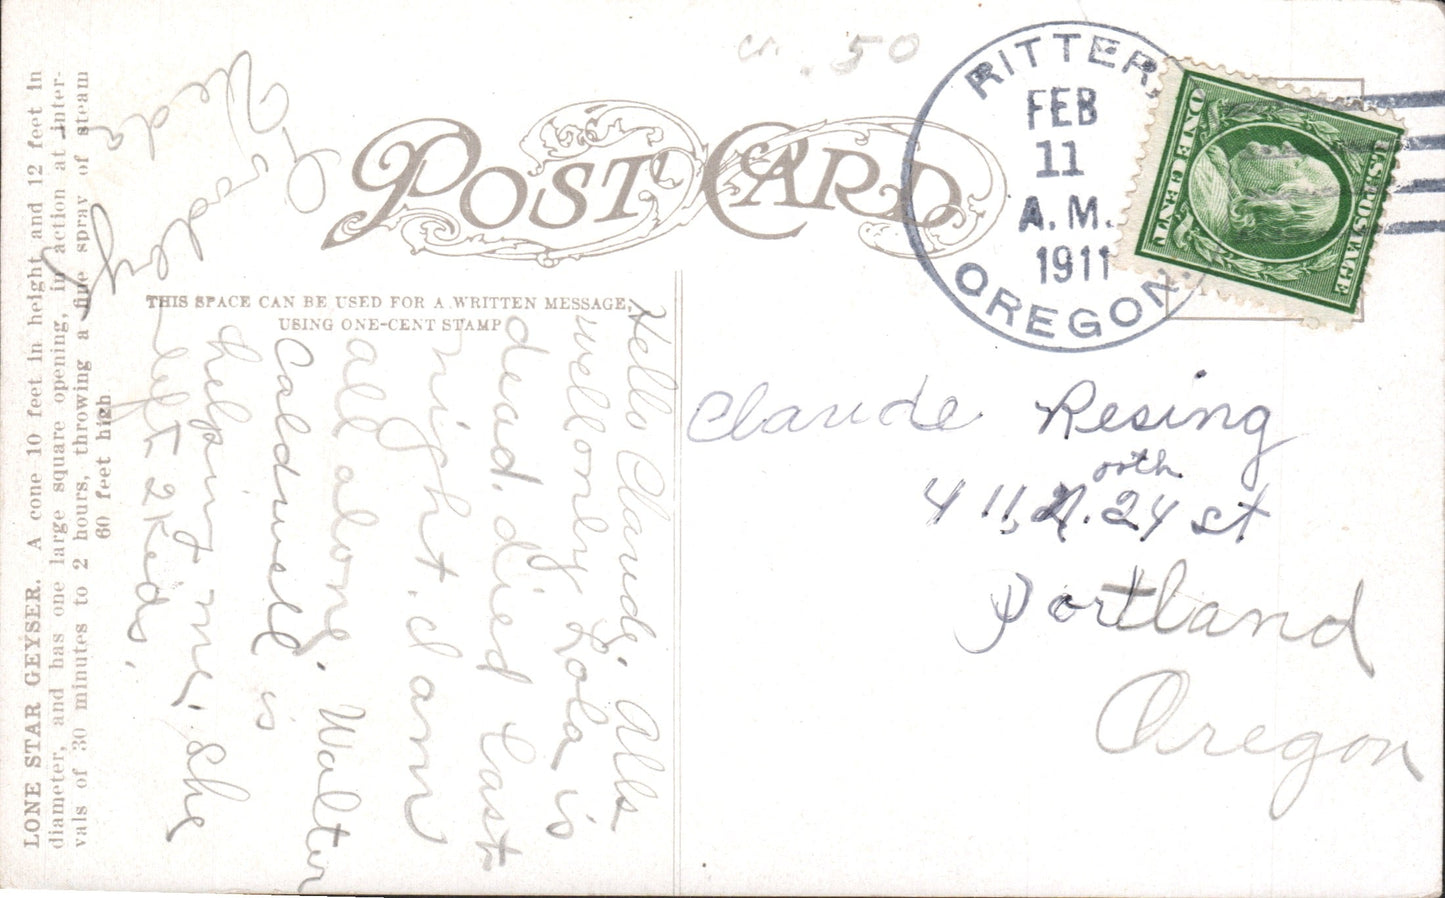 cr. .50
POST CARD
RITTER,
FEB
11
A.M.
1911
OREGON.
U.S. POSTAGE
ONE CENT
THIS SPACE CAN BE USED FOR A WRITTEN MESSAGE,
USING ONE-CENT STAMP
LONE STAR GEYSER. A cone 10 feet in height and 12 feet in
diameter, and has one large square opening, in action at inter-
vals of 30 minutes to 2 hours, throwing a fine spray of steam
60 feet high
Hello Claude. Alls
well only Lola is
dead. died last
night. I am
all alone. Walter
Caldwell is
helping me. She
left 2 Keds.
Claude Resing
411, N. 24 st
orth
Portland
Oregon